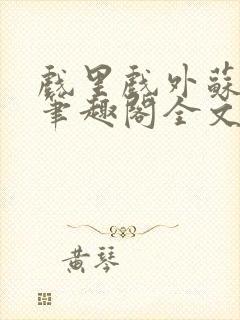 戲里戲外蘇
筆趣閣全文
黃琴